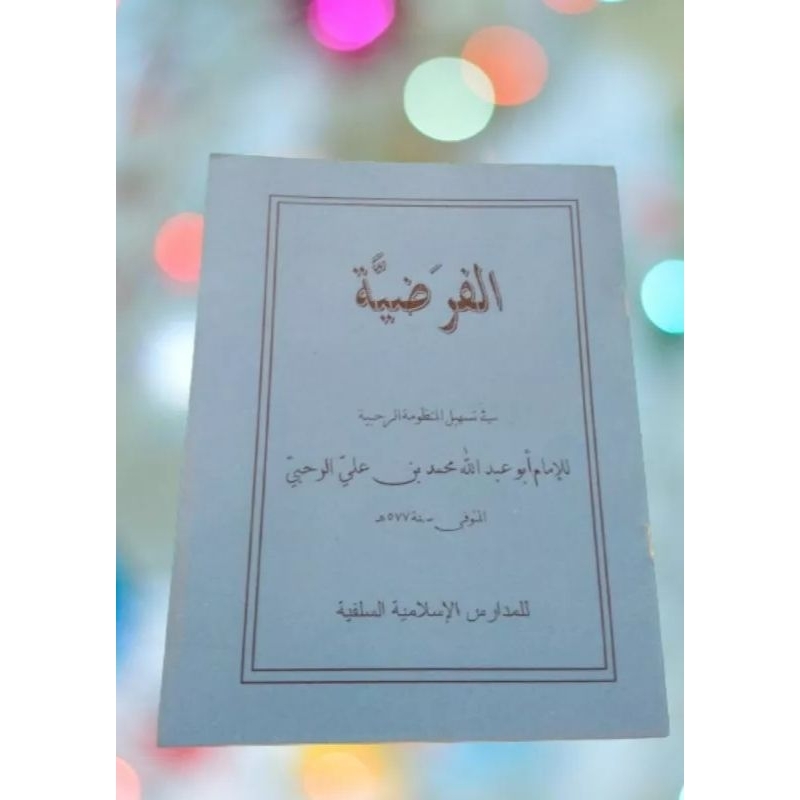 الفرَضيَّة
في تسهيل المنظومة الرحبية
للإمام أبو عبد الله محمد بن علي الرحبيّ
المتوفى سنة ٥٧٧هـ
للمدارس الإسلامية السلفية